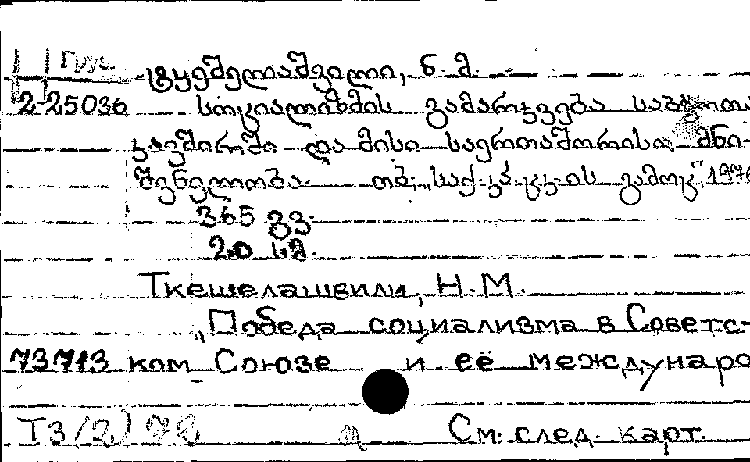 Груз
ტყეშელაშვილი, ნ. მ.
2-25036 სოციალიზმის გამარჯვება საბჭოთა
კავშირში და მისი საერთაშორისო მნი-
შვნელობა. თბ., „საქ. კპ ცკ-ის გამოც.", 1976
365 გვ.
20 სმ.
Ткешелашвили, Н. М.
„Победа социализма в Советс-
73713 ком Союзе и её междунаро
Т3(2)
См. след. карт.